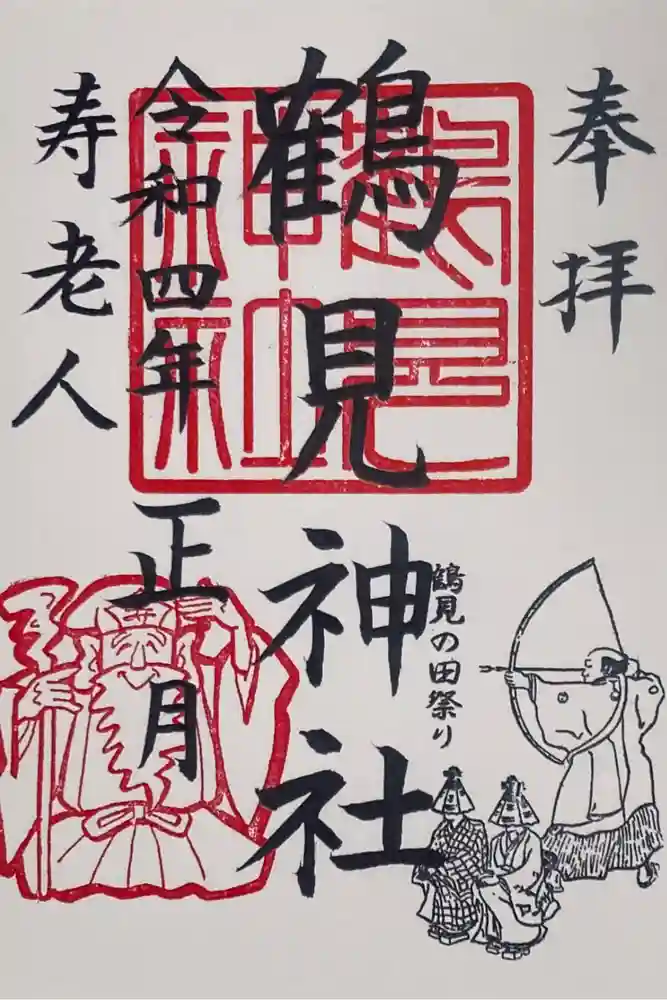 奉拝
鶴見の田祭り
鶴見神社
鶴見
神社
令和四年
正月
寿老人